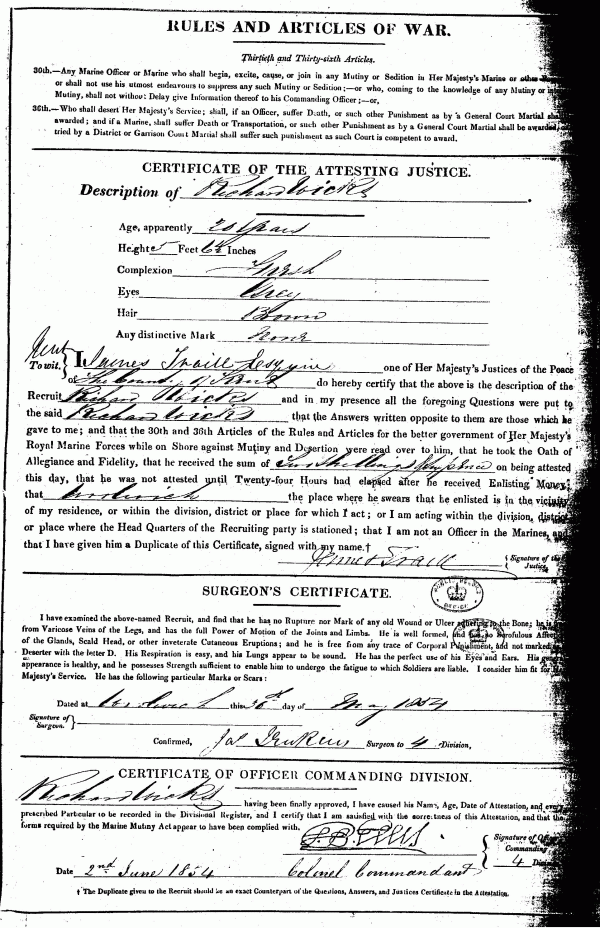 RULES AND ARTICLES OF WAR.
Thirtieth and Thirty-sixth Articles.
30th.—Any Marine Officer or Marine who shall begin, excite, cause, or join in any Mutiny or Sedition in Her Majesty's Marine or other
or shall not use his utmost endeavours to suppress any such Mutiny or Sedition;—or who, coming to the knowledge of any Mutiny or
Mutiny, shall not without Delay give Information thereof to his Commanding Officer;—or,
36th.—Who shall desert Her Majesty's Service; shall, if an Officer, suffer Death, or such other Punishment as by a General Court Martial shall
awarded; and if a Marine, shall suffer Death or Transportation, or such other Punishment as by a General Court Martial shall be awarded,
tried by a District or Garrison Court Martial shall suffer such punishment as such Court is competent to award.
CERTIFICATE OF THE ATTESTING JUSTICE.
Description of Richard Wicks.
Age, apparently 20 Years
Height 5 Feet 6¼ Inches
Complexion Fresh
Eyes Grey
Hair Brown
Any distinctive Mark None
Kent To wit. } I James Traill Esquire one of Her Majesty's Justices of the Peace
of The County of Kent do hereby certify that the above is the description of the
Recruit Richard Wicks and in my presence all the foregoing Questions were put to
the said Richard Wicks that the Answers written opposite to them are those which he
gave to me; and that the 30th and 36th Articles of the Rules and Articles for the better government of Her Majesty's
Royal Marine Forces while on Shore against Mutiny and Desertion were read over to him, that he took the Oath of
Allegiance and Fidelity, that he received the sum of Two Shillings & Sixpence on being attested
this day, that he was not attested until Twenty-four Hours had elapsed after he received Enlisting Money;
that Woolwich the place where he swears that he enlisted is in the vicinity
of my residence, or within the division, district or place for which I act; or I am acting within the division, district
or place where the Head Quarters of the Recruiting party is stationed; that I am not an Officer in the Marines, and
that I have given him a Duplicate of this Certificate, signed with my name.†
James Traill { Signature of the Justice.
SURGEON'S CERTIFICATE.
I have examined the above-named Recruit, and find that he has no Rupture nor Mark of any old Wound or Ulcer adhering to the Bone; he is
from Varicose Veins of the Legs, and has the full Power of Motion of the Joints and Limbs. He is well formed, and has no Scrofulous Affection
of the Glands, Scald Head, or other inveterate Cutaneous Eruptions; and he is free from any trace of Corporal Punishment, and not marked
Deserter with the letter D. His Respiration is easy, and his Lungs appear to be sound. He has the perfect use of his Eyes and Ears. His general
appearance is healthy, and he possesses Strength sufficient to enable him to undergo the fatigue to which Soldiers are liable. I consider him fit for
Majesty's Service. He has the following particular Marks or Scars:
Dated at Woolwich this day of May 1854
Signature of Surgeon. }
Confirmed, Surgeon to 4 Division,
CERTIFICATE OF OFFICER COMMANDING DIVISION.
Richard Wicks having been finally approved, I have caused his Name, Age, Date of Attestation, and every
prescribed Particular to be recorded in the Divisional Register, and I certify that I am satisfied with the correctness of this Attestation, and that the
forms required by the Marine Mutiny Act appear to have been complied with.
Signature of Officer Commanding 4
Date 2nd June 1854 Colonel Commandant
† The Duplicate given to the Recruit should be an exact Counterpart of the Questions, Answers, and Justices Certificate in the Attestation.